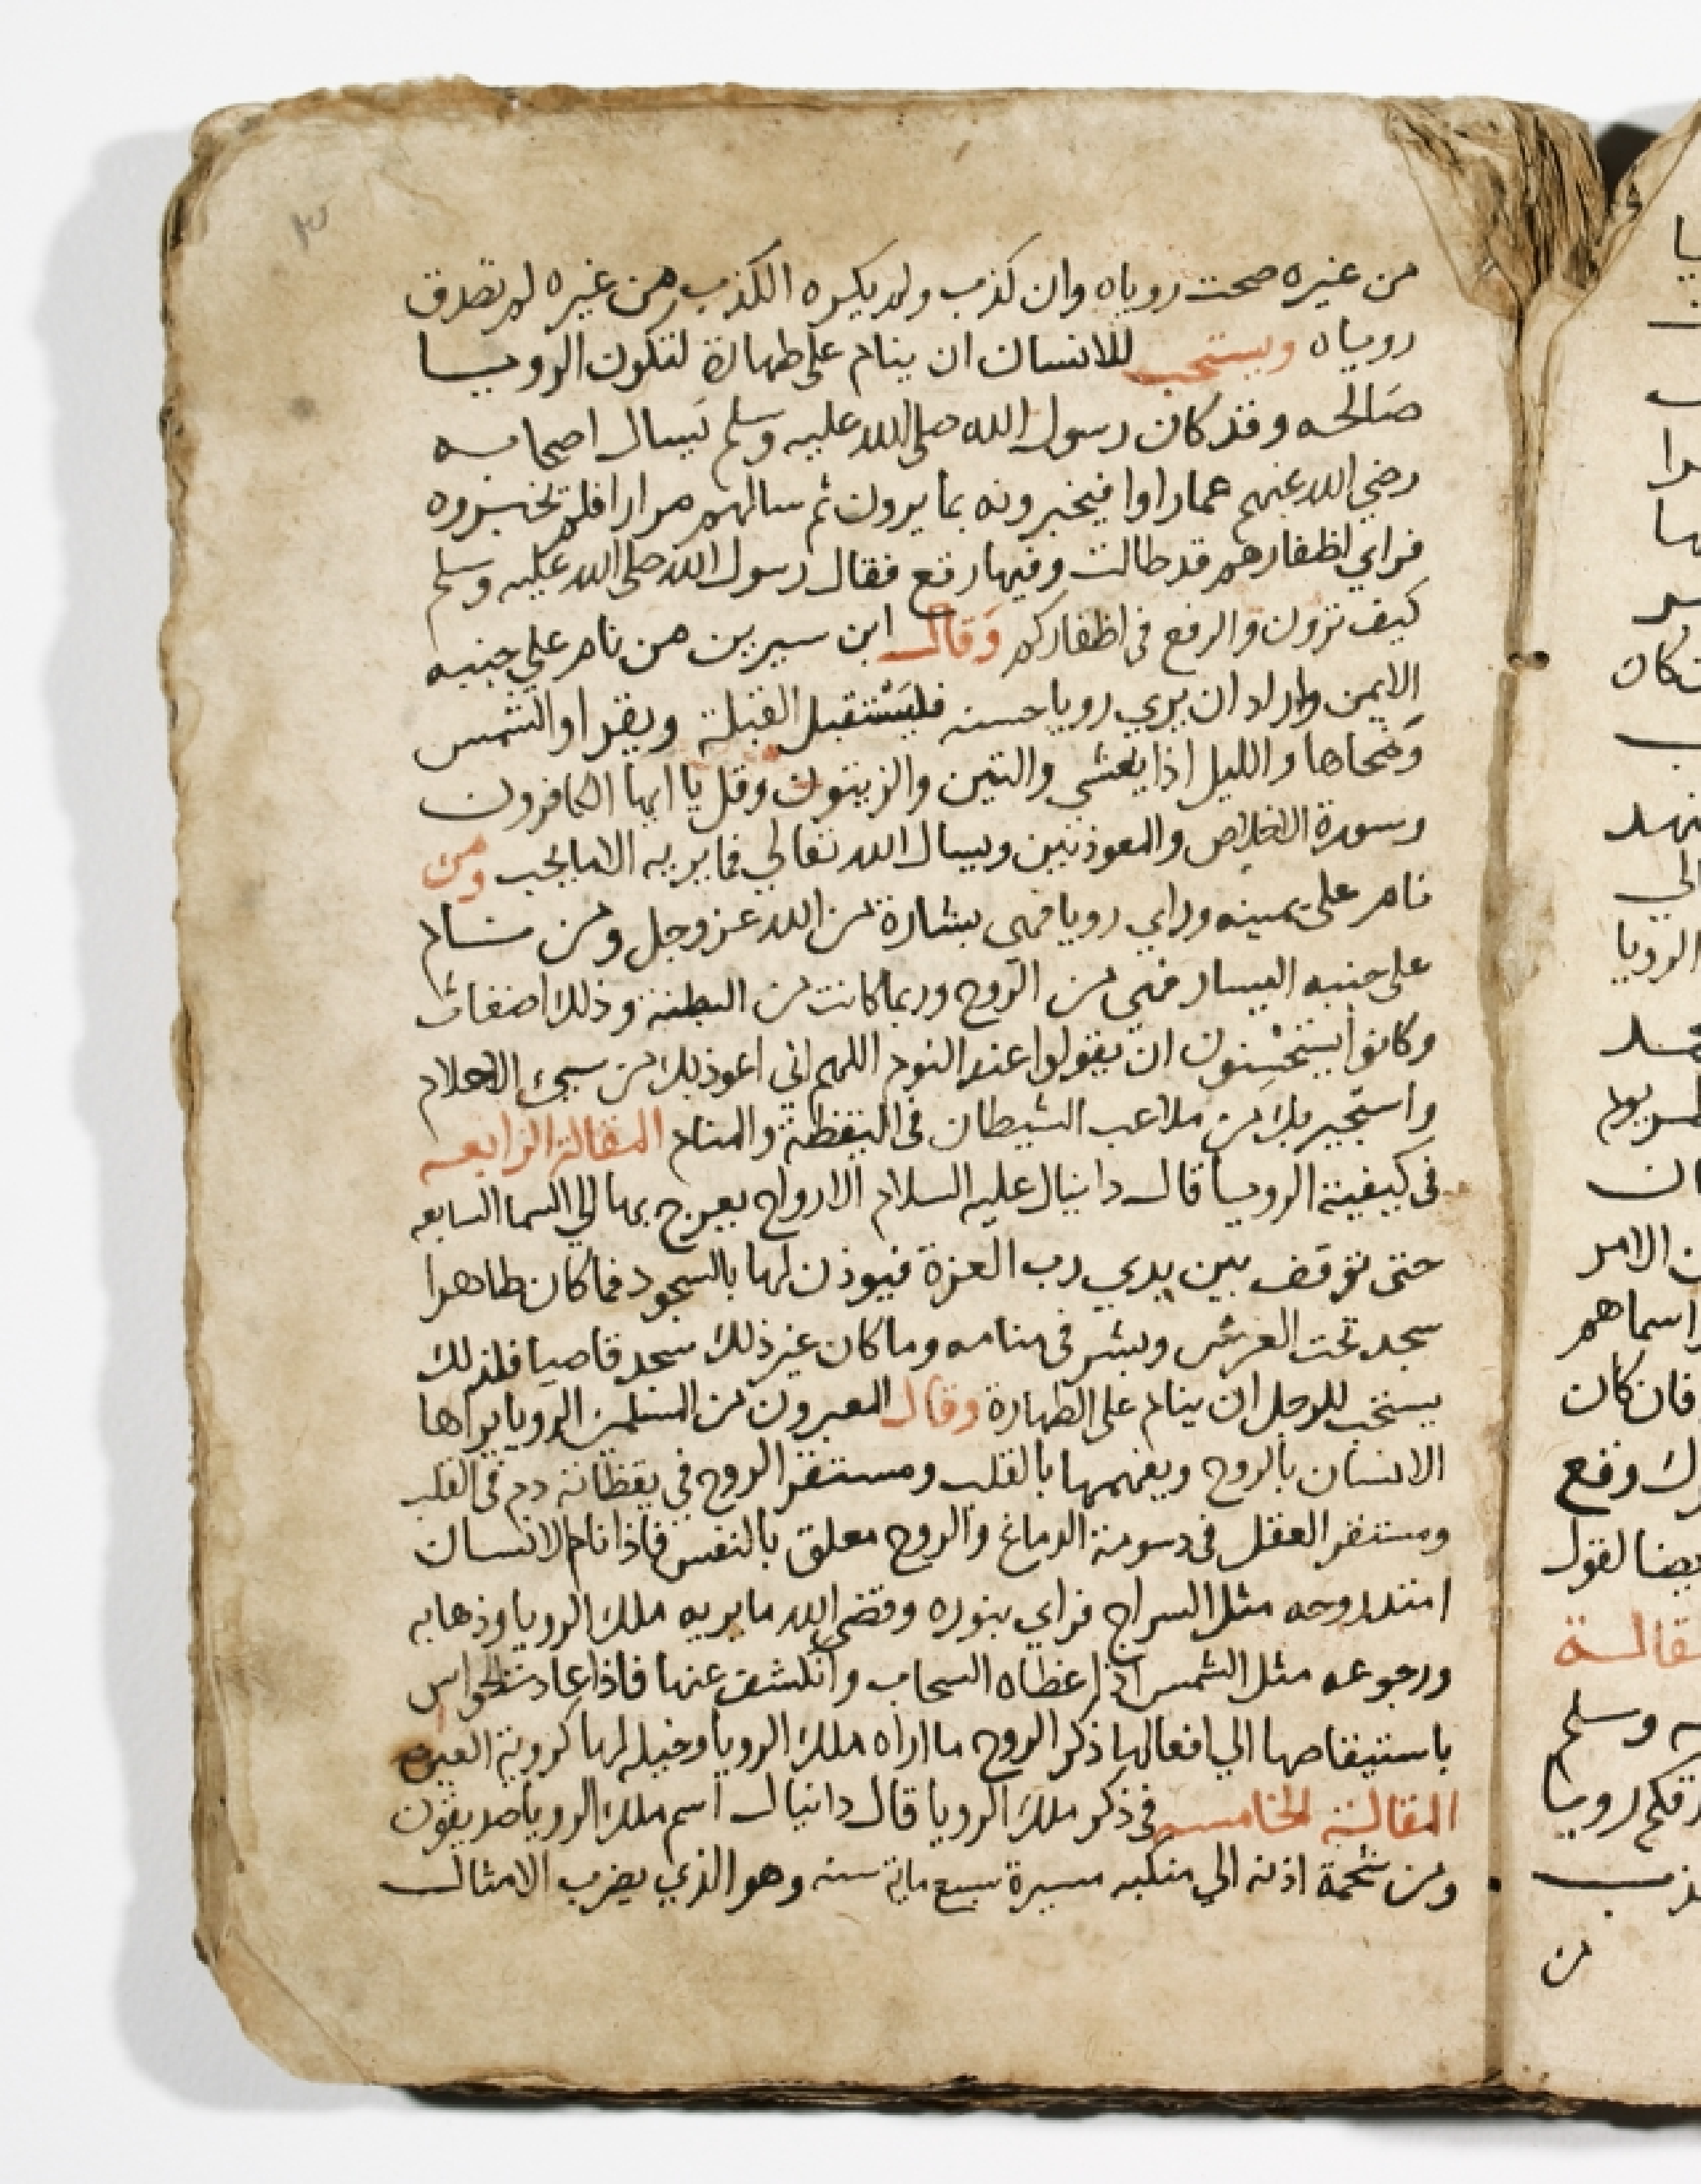 ٣
من غيره صحت روياه وان كذب ولم يكره الكذب من غيره لم تصدق
روياه ويستحب للانسان ان ينام على طهارة لتكون الرويا
صالحه وقد كان رسول الله صلى الله عليه وسلم يسال اصحابه
رضي الله عنهم عمارا وا فيخبرونه بما يرون ثم سالهم مرارا فلم يخبروه
فراي اظفارهم قد طالت وفيها رفغ فقال رسول الله صلى الله عليه وسلم
كيف ترون والرفغ فى اظفاركم وقال ابن سيرين من نام علي جنبه
الايمن واراد ان يري رويا حسنه فليستقبل القبلة ويقرا والشمس
وضحاها والليل اذا يغشي والتين والزيتون وقل يا ايها الكافرون
وسورة الاخلاص والمعوذتين ويسال الله تعالي فما يريه الا ما يحب ومن
نام على يمينه وراي رويا فهى بشارة من الله عز وجل ومن نام
على جنبه اليسار فهى من الروح وربما كانت من البطنة وذلك اضغاث
وكانوا يستحسنون ان يقولوا عند النوم اللهم انى اعوذ بك من سيئ الاحلام
واستجير بك من ملاعب الشيطان فى اليقظة والمنام المقالة الرابعه
فى كيفية الرويا قال دانيال عليه السلام الارواح يعرج بها الي السما السابعه
حتى توقف بين يدي رب العزة فيوذن لها بالسجود فما كان طاهرا
سجد تحت العرش وبشر فى منامه وما كان غير ذلك سجد قاصيا فلذلك
يستحب للرجل ان ينام على الطهارة وقال المعبرون من المسلمين الرويا يراها
الانسان بالروح ويفهمها بالقلب ومستقر الروح في يقظاته دم فى القلب
ومستقر العقل فى دسومة الدماغ والروح معلق بالنفس فاذا نام الانسان
امتد روحه مثل السراج فراي بنوره وقضى الله ما يريه ملك الرويا وذهابه
ورجوعه مثل الشمس اذا غطاه السحاب وانكشف عنها فاذا عادت الحواس
باستيقاصها الي افعالها ذكر الروح ما اراه ملك الرويا وخيله لها كروية العين
المقالة الخامسه فى ذكر ملك الرويا قال دانيال اسم ملك الرويا صديقون
ومن شحمة اذنه الي منكبه مسيرة سبع ماية سنه وهو الذي يضرب الامثال